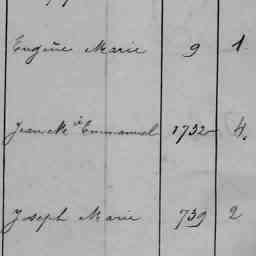 Eugène Marie 9 1
Jean Me Emmanuel 1732 4.
Joseph Marie 739 2